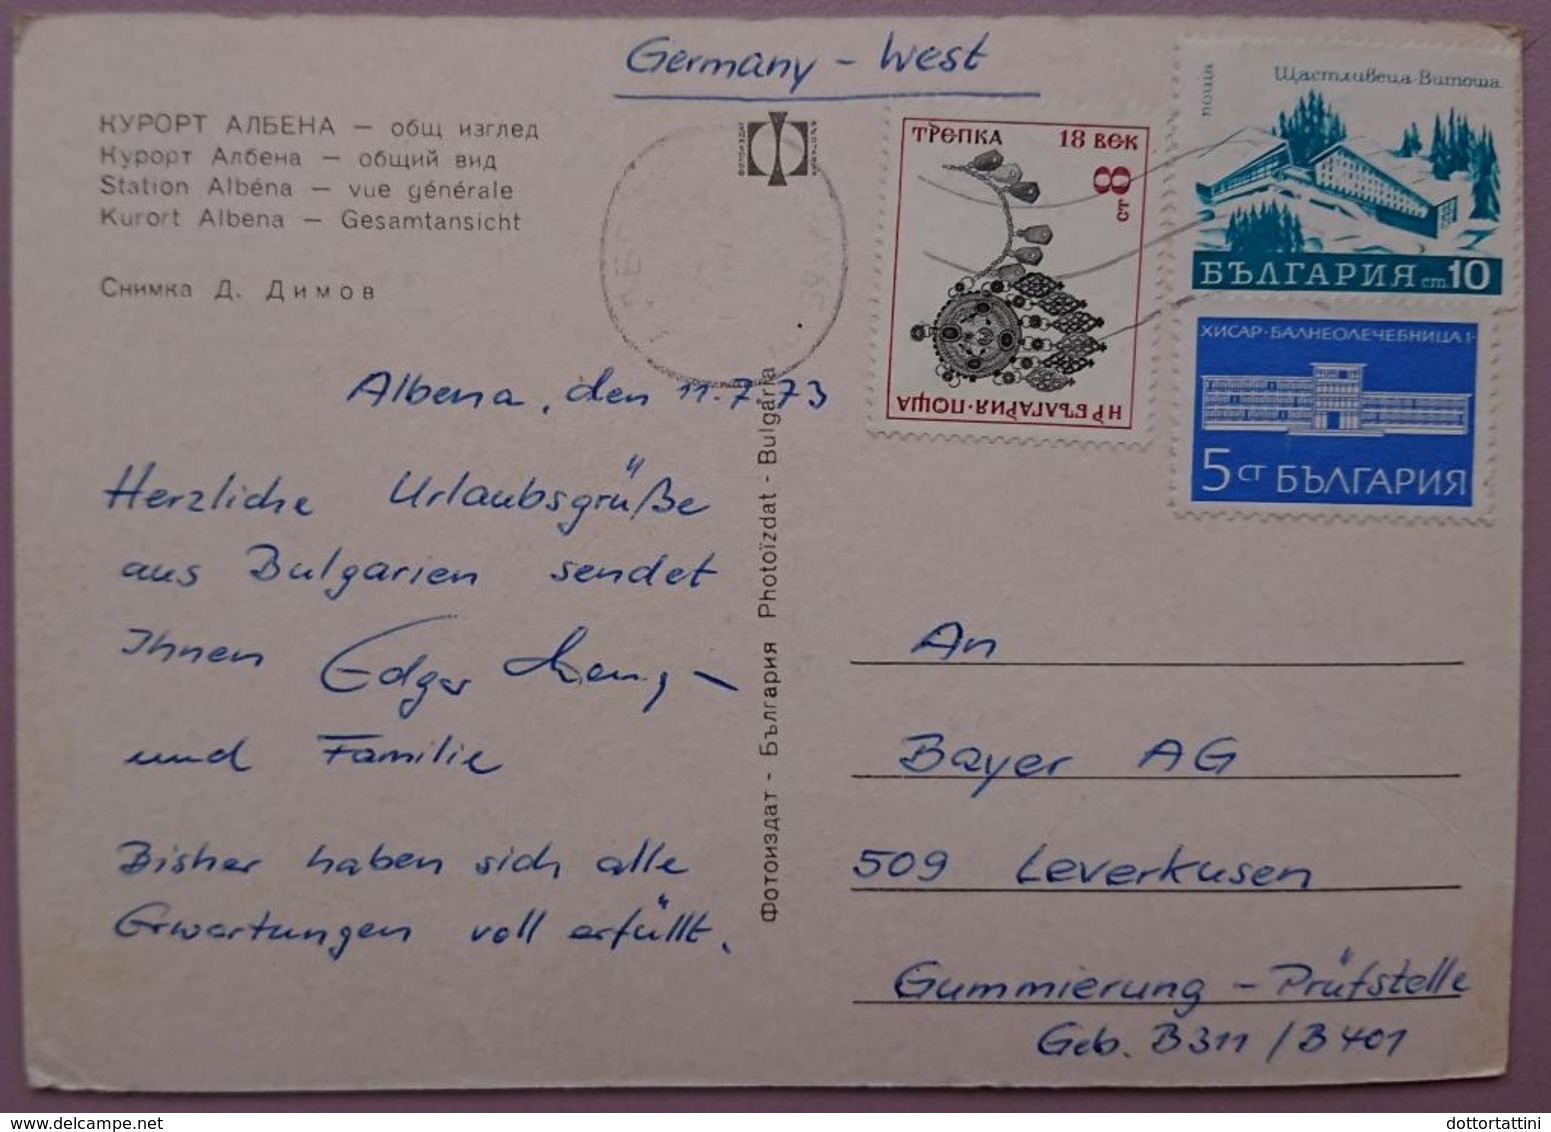 Germany - West
КУРОРТ АЛБЕНА — общ изглед
Курорт Албена — общий вид
Station Albéna — vue générale
Kurort Albena — Gesamtansicht
Снимка Д. Димов
ТРЕПКА 18 ВЕК
8 СТ
НР БЪЛГАРИЯ·ПОЩА
поща
Щастливеца-Витоша
БЪЛГАРИЯ ст.10
ХИСАР·БАЛНЕОЛЕЧЕБНИЦА 1·
5 СТ БЪЛГАРИЯ
Albena, den 11.7.73
Herzliche Urlaubsgrüße
aus Bulgarien sendet
Ihnen Edgar
und Familie
Bisher haben sich alle
Erwartungen voll erfüllt.
Фотоиздат - България Photoïzdat - Bulgária
An
Bayer AG
509 Leverkusen
Gummierung - Prüfstelle
Geb. B311 / B401
dottortattini